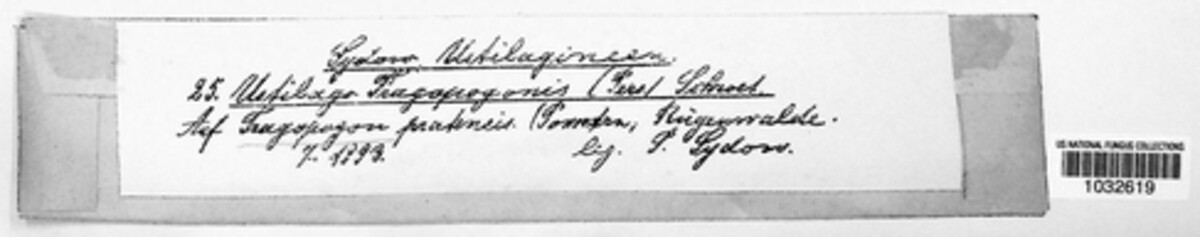 Sydow. Ustilagineen.
25. Ustilago Tragopogonis (Pers) Schroet.
Auf Tragopogon pratensis. Pommern, Rügenwalde.
7. 1893. lig. P. Sydow.
US NATIONAL FUNGUS COLLECTIONS
1032619